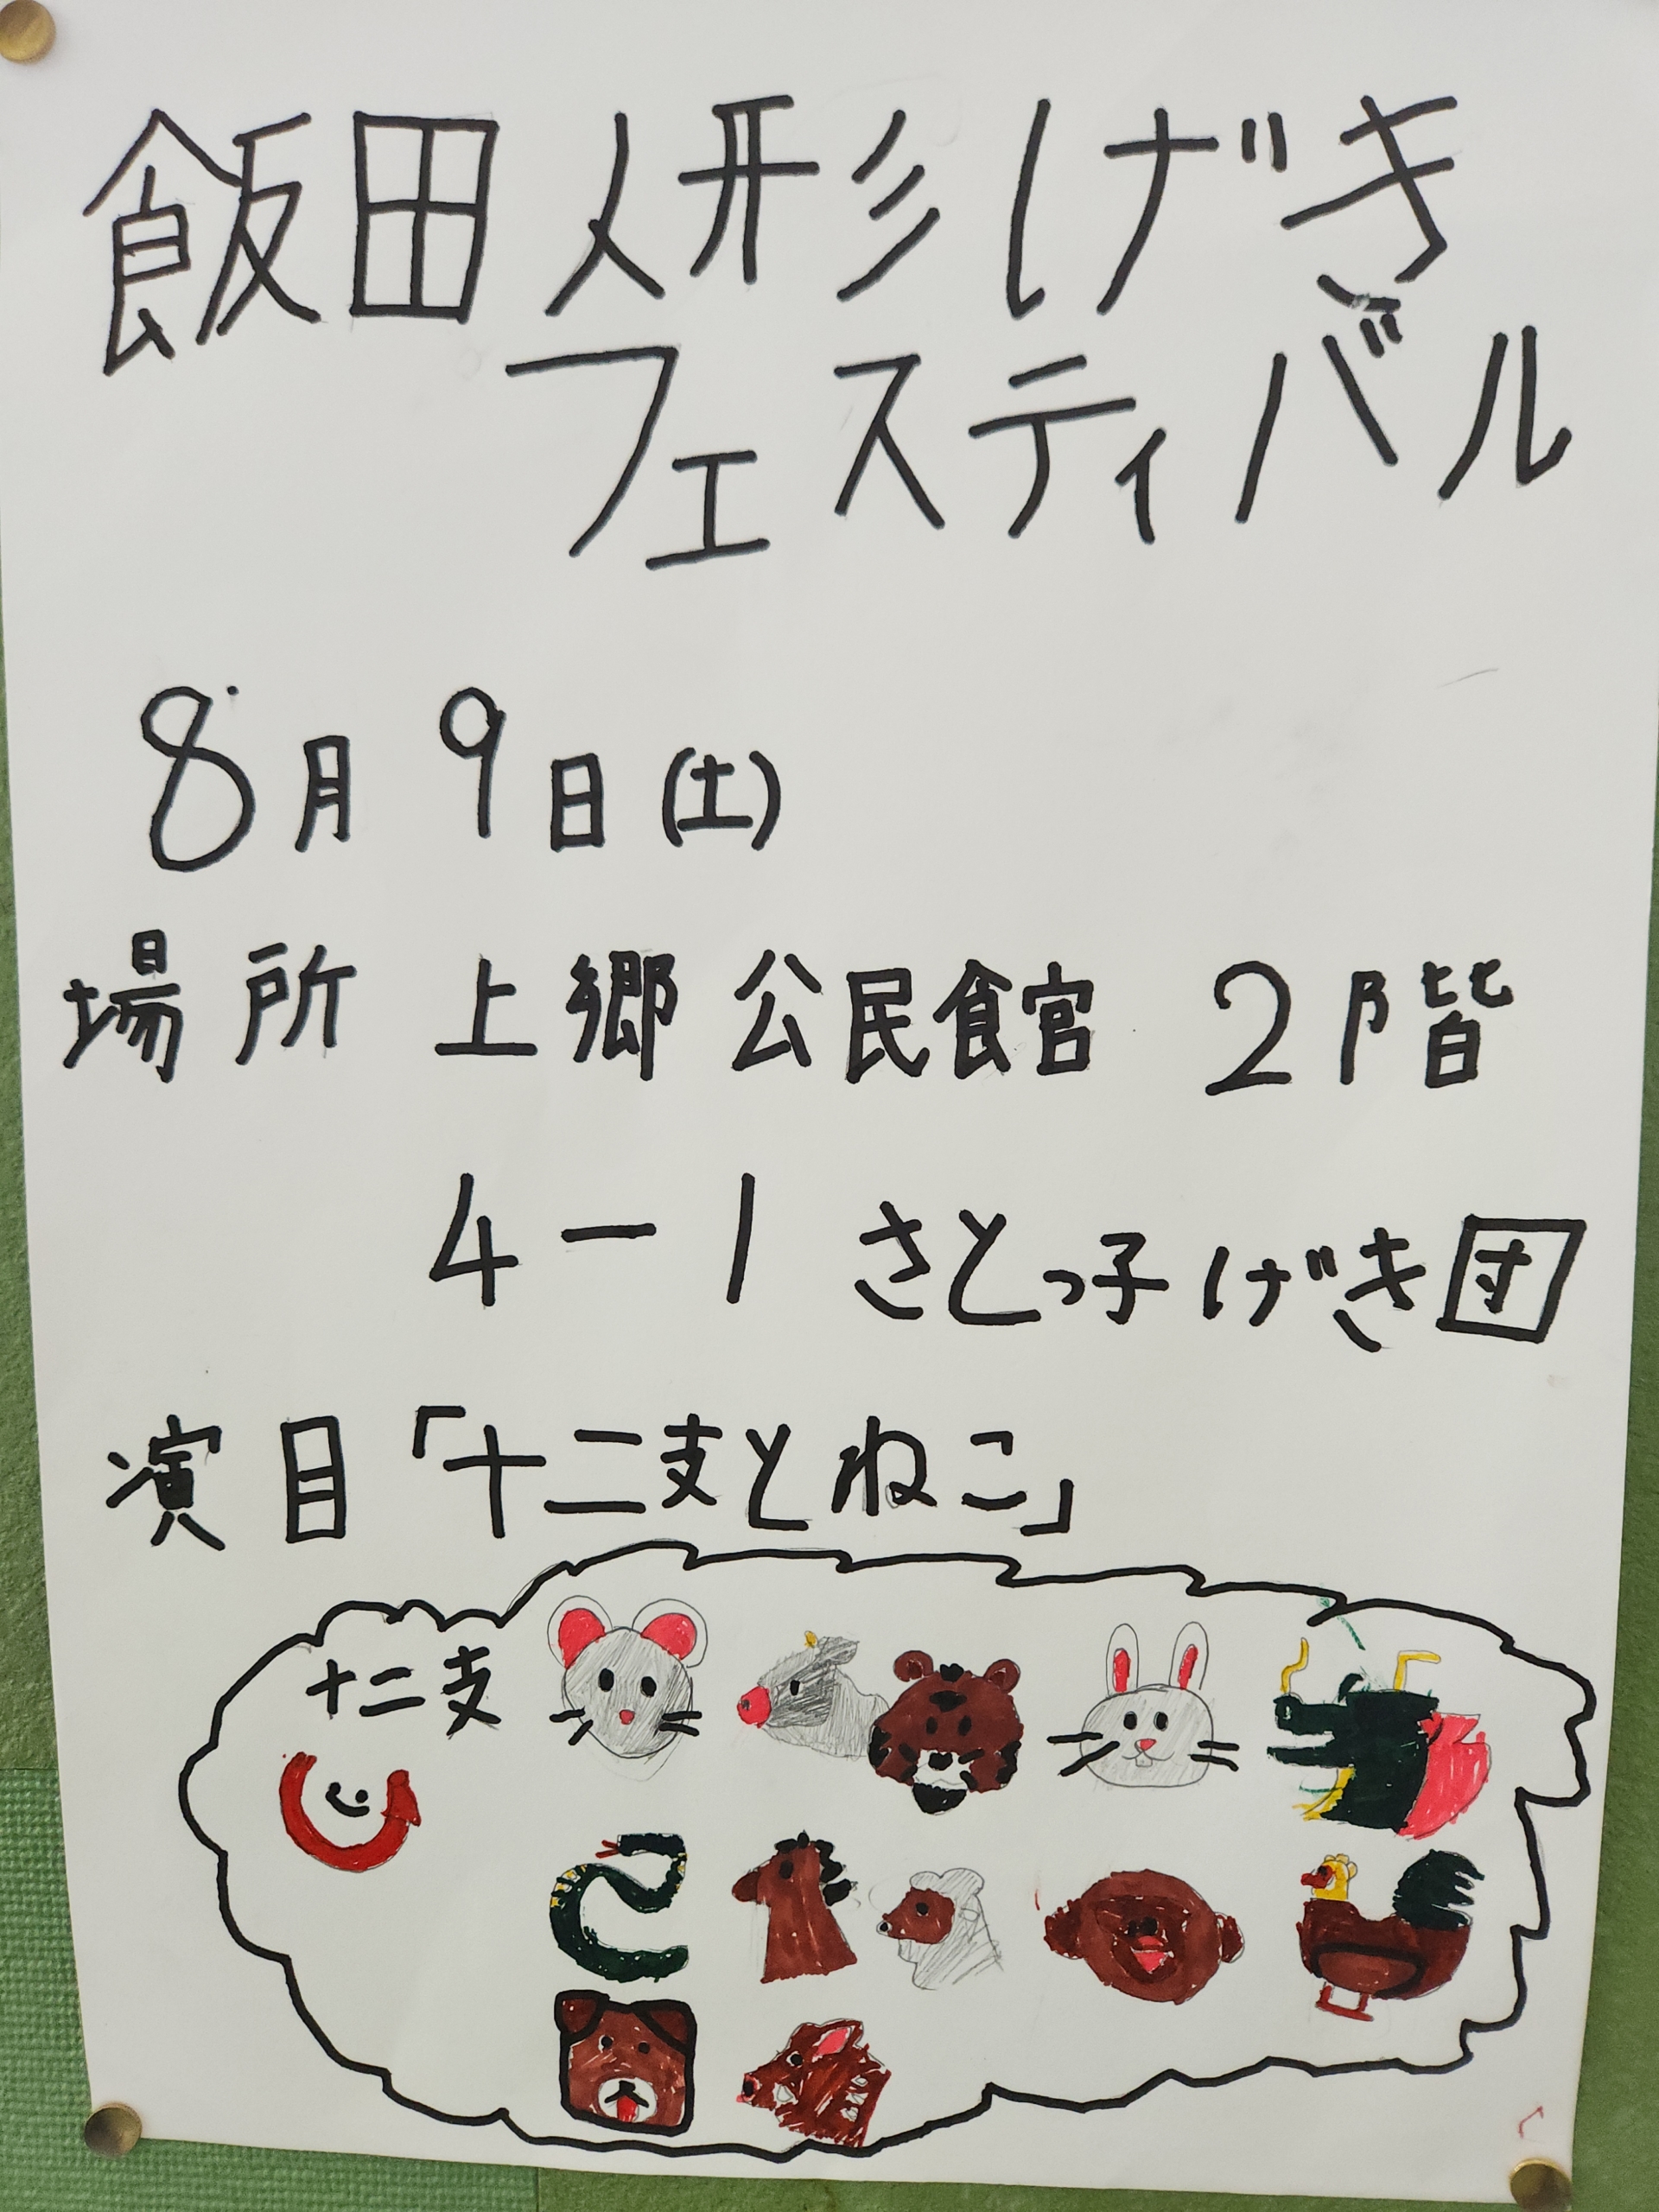 飯田人形げき
フェスティバル
8月9日(土)
場所 上郷公民館 2階
4-1 さとっ子げき団
演目「十二支とねこ」
十二支